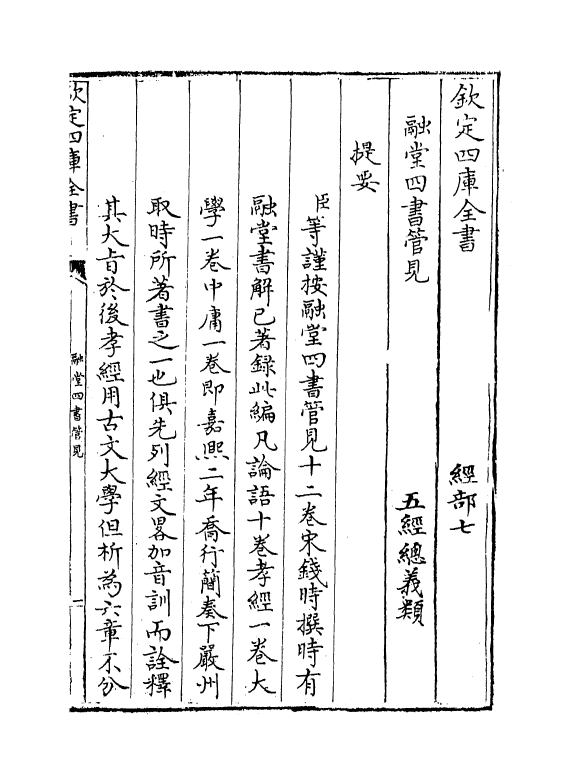 欽定四庫全書
經部七
融堂四書管見
五經總義類
提要
臣等謹按融堂四書管見十二卷宋錢時撰時有
融堂書解已著録此編凡論語十卷孝經一卷大
學一卷中庸一卷即嘉熙二年喬行簡奏下嚴州
取時所著書之一也俱先列經文畧加音訓而詮釋
其大㫖於後孝經用古文大學但析為六章不分
欽定四庫全書
融堂四書管見
一